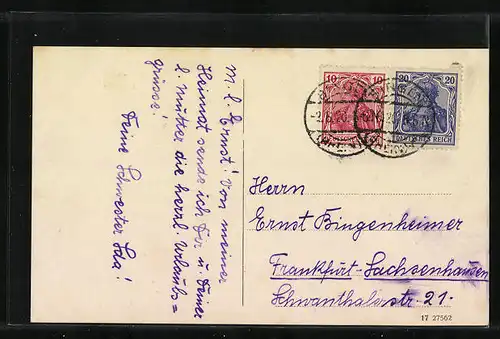 M. l. Ernst! Von meiner
Heimat sende ich Dir u. Deiner
l. Mutter die herrl. Urlaubs=
grüsse!
Deine Schwester Ida!
10 10
20 20
DEUTSCHES REICH
Herrn
Ernst Bingenheimer
Frankfurt-Sachsenhausen
Schwanthalerstr. 21.
17 27562